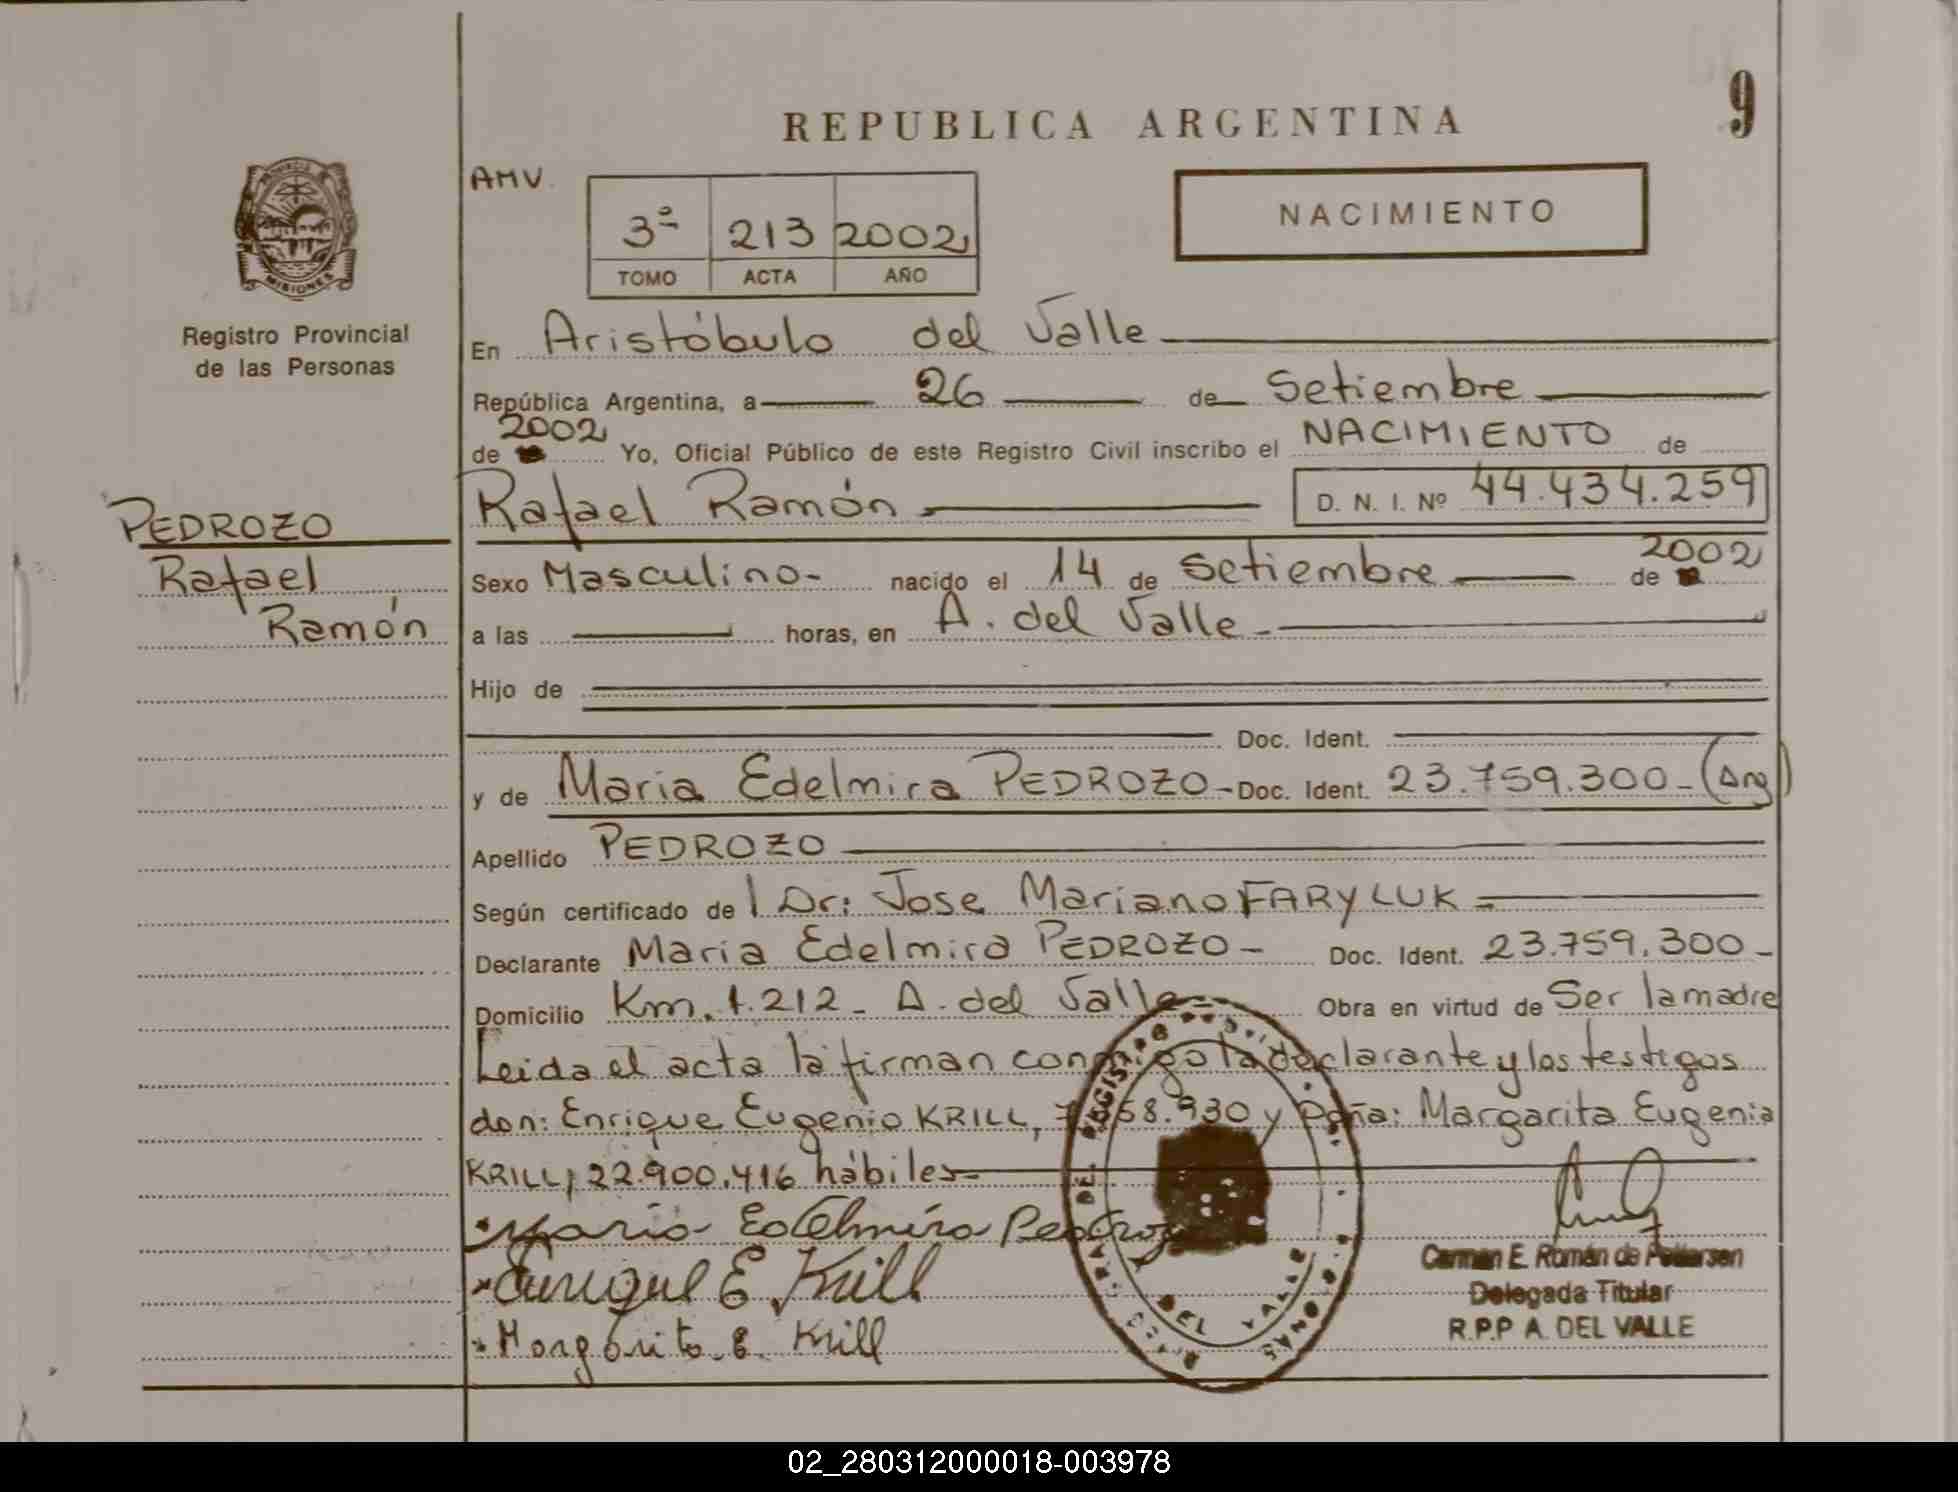 9
REPUBLICA ARGENTINA
AMV.
3º 213 2002
TOMO ACTA AÑO
NACIMIENTO
PROVINCIA DE
MISIONES
Registro Provincial
de las Personas
En Aristóbulo del Valle
República Argentina, a 26 de Setiembre
de 2002 Yo, Oficial Público de este Registro Civil inscribo el NACIMIENTO de
Rafael Ramón D. N. I. Nº 44.434.259
PEDROZO
Rafael
Ramón
Sexo Masculino- nacido el 14 de Setiembre de 2002
a las horas, en A. del Valle-
Hijo de
Doc. Ident.
y de Maria Edelmira PEDROZO- Doc. Ident. 23.759.300-(Arg)
Apellido PEDROZO
Según certificado del Dr: Jose Mariano FARYLUK
Declarante Maria Edelmira PEDROZO- Doc. Ident. 23.759.300-
Domicilio Km. 1.212- A. del Valle- Obra en virtud de Ser la madre
Leida el acta la firman conmigo la declarante y los testigos
don: Enrique Eugenio KRILL, 68.930 y Doña: Margarita Eugenia
KRILL, 22.900.416 hábiles-
Maria Edelmira Pedrozo
Enrique E Krill
Margarita E. Krill
DEL VALLE
Carmen E. Román de Pettersen
Delegada Titular
R.P.P A. DEL VALLE
02_280312000018-003978